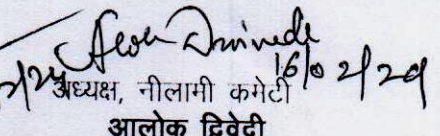 Alok Dwivedi
16/02/24
अध्यक्ष, नीलामी कमेटी
आलोक द्विवेदी